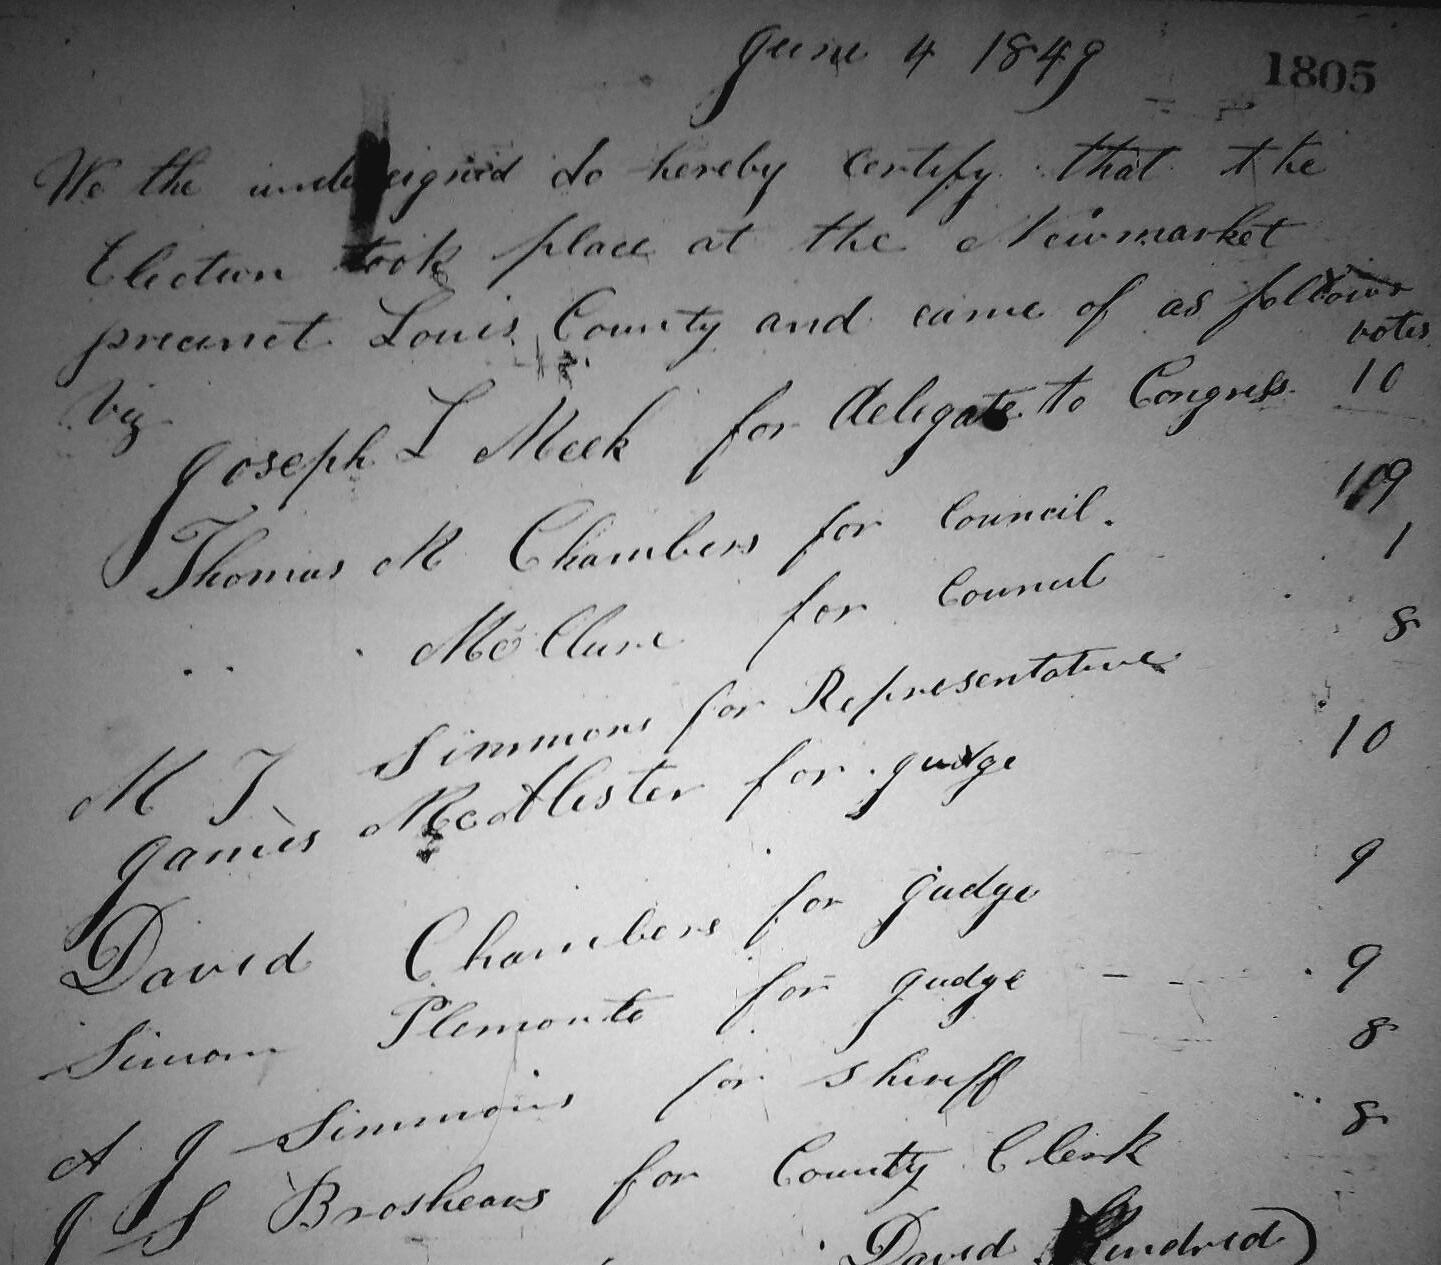 June 4 1849
1805
We the undersigned do hereby certify that the
Election took place at the Newmarket
precinct Louis County and came of as follows
votes
Viz
Joseph L Meek for delegate to Congress 10
Thomas M Chambers for Council. 9
McClure for Council 1
M T Simmons for Representative 8
James McAlister for judge 10
David Chambers for judge 9
Simon Plemonte for judge 9
A J Simmons for Sheriff 8
J S Brosheaus for County Clerk 8
David Kindred